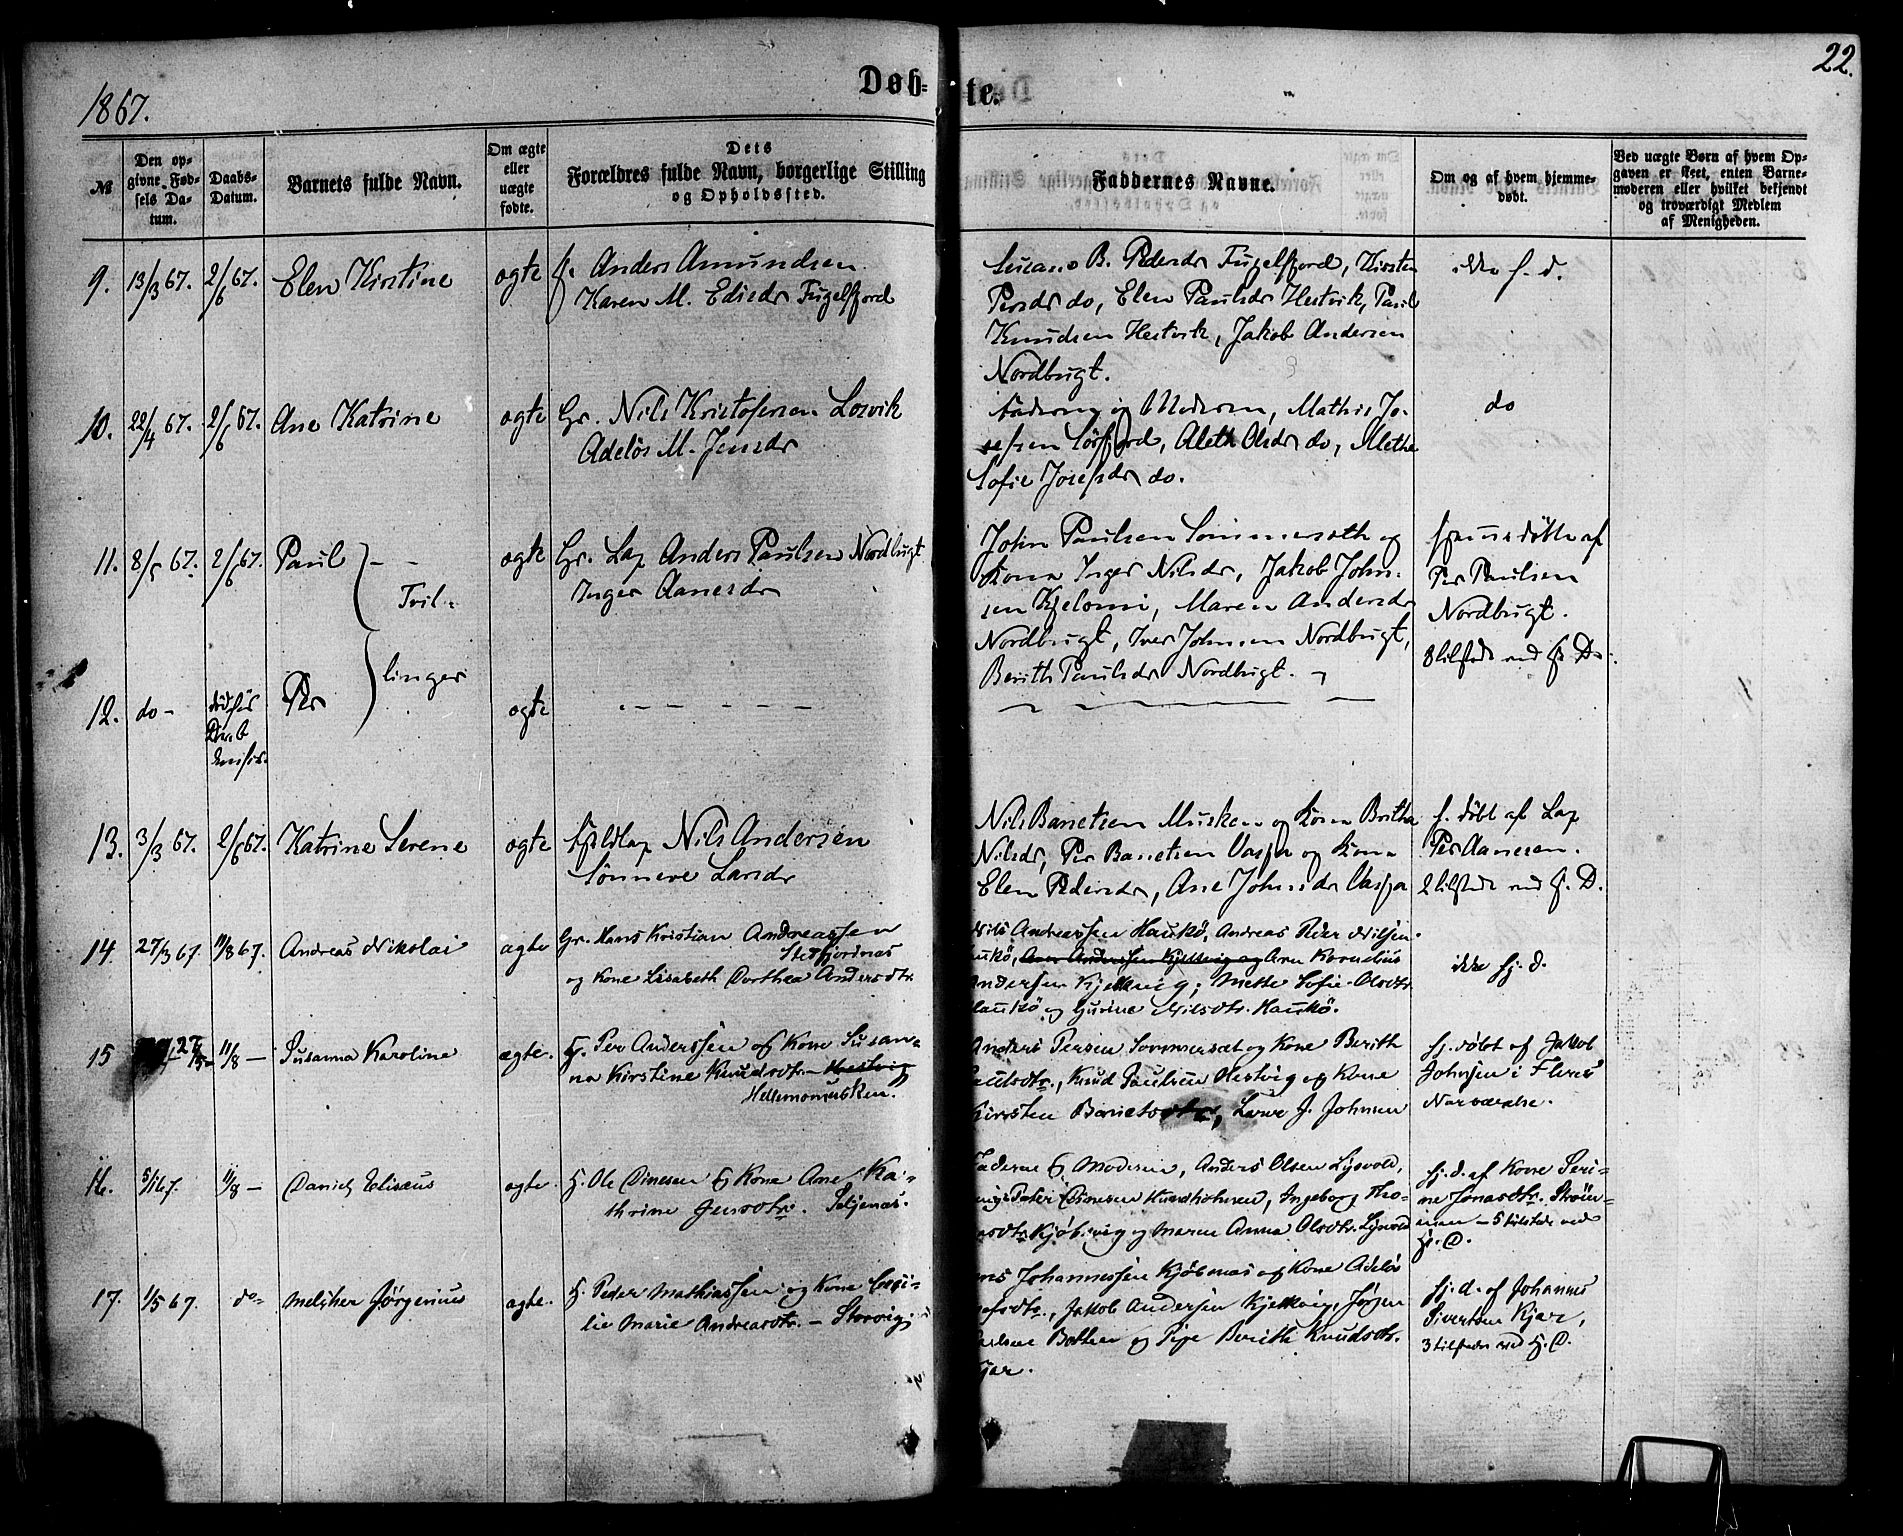 22.
1867.
Døb-
te.
№
Den op-
givne Fød-
sels Da-
tum.
Daabs-
Datum.
Barnets fulde Navn.
Om ægte
eller
uægte
fødte.
Dets
Forældres fulde Navn, borgerlige Stilling
og Opholdssted.
Faddernes Navne.
Om og af hvem hjemme-
døbt.
Ved uægte Børn af hvem Op-
gaven er skeet, enten Barne-
moderen eller hvilket bekjendt
og troværdigt Medlem
af Menigheden.
9. 13/3 67. 2/6 67. Elen Kirstine ægte
Anders Amundsen
Karen M. Fugelfjord
B. Pedersdr Fugelfjord, Kirsten
Persdr do, Elen Paulsdr Hestvik, Paul
Knudsen Hestvik, Jakob Andersen
Nordbugt.
ikke h. d.
10. 22/4 67. 2/6 67. Ane Katrine ægte
Gr. Nils Kristofersen Losvik
Adelös M. Jensdr
Faderen og Moderen, Mathis Jo-
sefsen Sörfjord, Aleth Olsdr do, Methe
Sofie Josefsdr do.
do
11. 8/5 67. 2/6 67. Paul
Tvil-
ægte
Gr. Lap Anders Paulsen Nordbugt
Inger Aanesdr
John Paulsen Sommerseth og
Kona Inger Nilsdr, Jakob John-
sen Kjelomi, Maren Andersdr
Nordbugt, Iver Johnsen Nordbugt,
Berith Paulsdr Nordbugt.
hjemmedöbt af
Per Paulsen
Nordbugt.
8 tilstede ved H. D.
12. do - död för
Per
linger
ægte
13. 3/3 67. 2/6 67. Katrine Serene ægte
Fjeldlap Nils Andersen
Sönneve Larsdr
Nils Banetsen Musken og Kona Britha
Nilsdr, Per Banetsen Vaspa og Kona
Elen Pedersdr, Ane Johnsdr Vaspa
h. döbt af Lap
Per Aanesen.
2 tilstede ved H. D.
14. 27/3 67. 11/8 67. Andreas Nikolai ægte
Gr. Hans Kristian Andreassen
Stetfjordnæs
og Kone Lisabeth Dorthea Andersdtr.
Nils Andreassen Haukö, Andreas Peder Nilsen
Arn Kornelius
Andersen Kjelkvig, Mette Sofie Olsdtr.
Haukö og Gurine Nilsdtr. Haukö.
ikke hj. d.
15 27/5 11/8 — Susanna Karoline ægte.
H. Per Anderssen og Kone Susan-
na Kirstine Knudsdtr. Hestvig
Hellemomusken.
Anders Persen Sommersæt og Kone Berith
Paulsdtr., Knud Paulsen Hestvig og Kone
Kirsten Banetsdtr, J. Johnsen
hj. döbt af Jakob
Johnsen i Fleres
Nærværelse.
16. 5/1 67. 11/8 — Daniel Eliseus ægte.
H. Ole Dinesen og Kone Ane Ka-
thrine Jensdtr. Seljenæs.
Faderne og Moderen, Anders Olsen Lysvold,
Peter Dionsen Hundholmen, Ingeborg Tho-
Kjöbsvig og Maren Anna Olsdtr. Lysvold
hj. d. af Kone Seri-
ne Jonasdtr. Ström-
men – 5 tilstede ved
Hj. D.
17. 1/5 67. do- Melcher Jörgenius ægte.
H. Peder Mathiassen og Kone Cecil-
lie Marie Andreasdtr. – Storvig
Johannessen Kjöbnæs og Kone Adelös
Jakob Andersen Kjelkvig, Jörgen
Bothen og Pige Berith Knudsdtr.
Kjær.
hj. d. af Johannes
Sivertsen Kjær,
3 tilstede ved Hj. D.